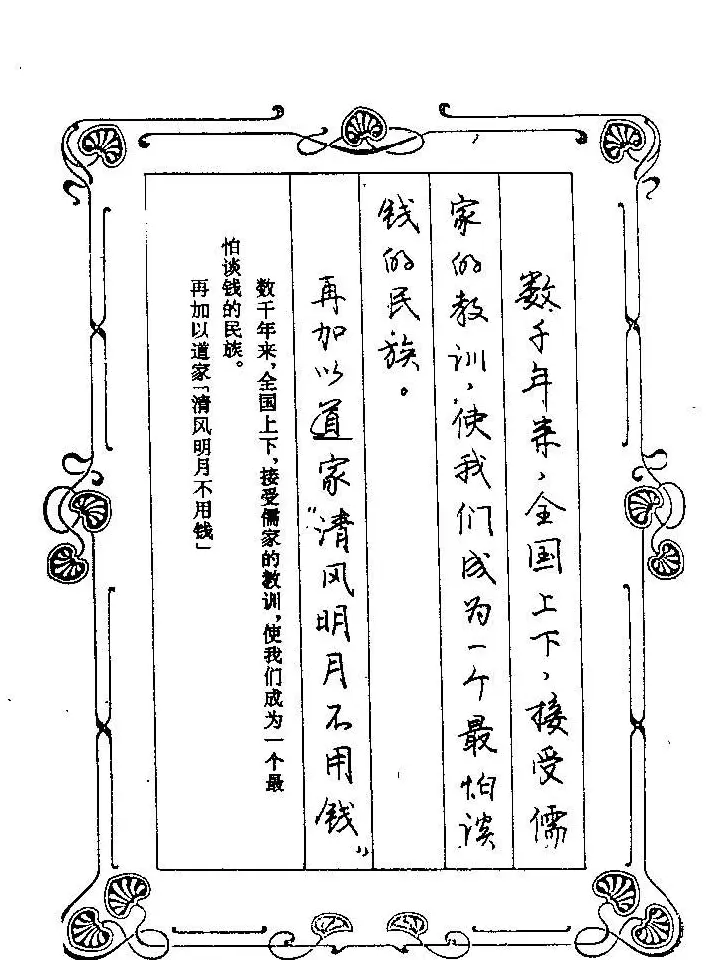 数千年来，全国上下，接受儒
家的教训，使我们成为一个最怕谈
钱的民族。
再加以道家“清风明月不用钱”
数千年来，全国上下，接受儒家的教训，使我们成为一个最
怕谈钱的民族。
再加以道家「清风明月不用钱」